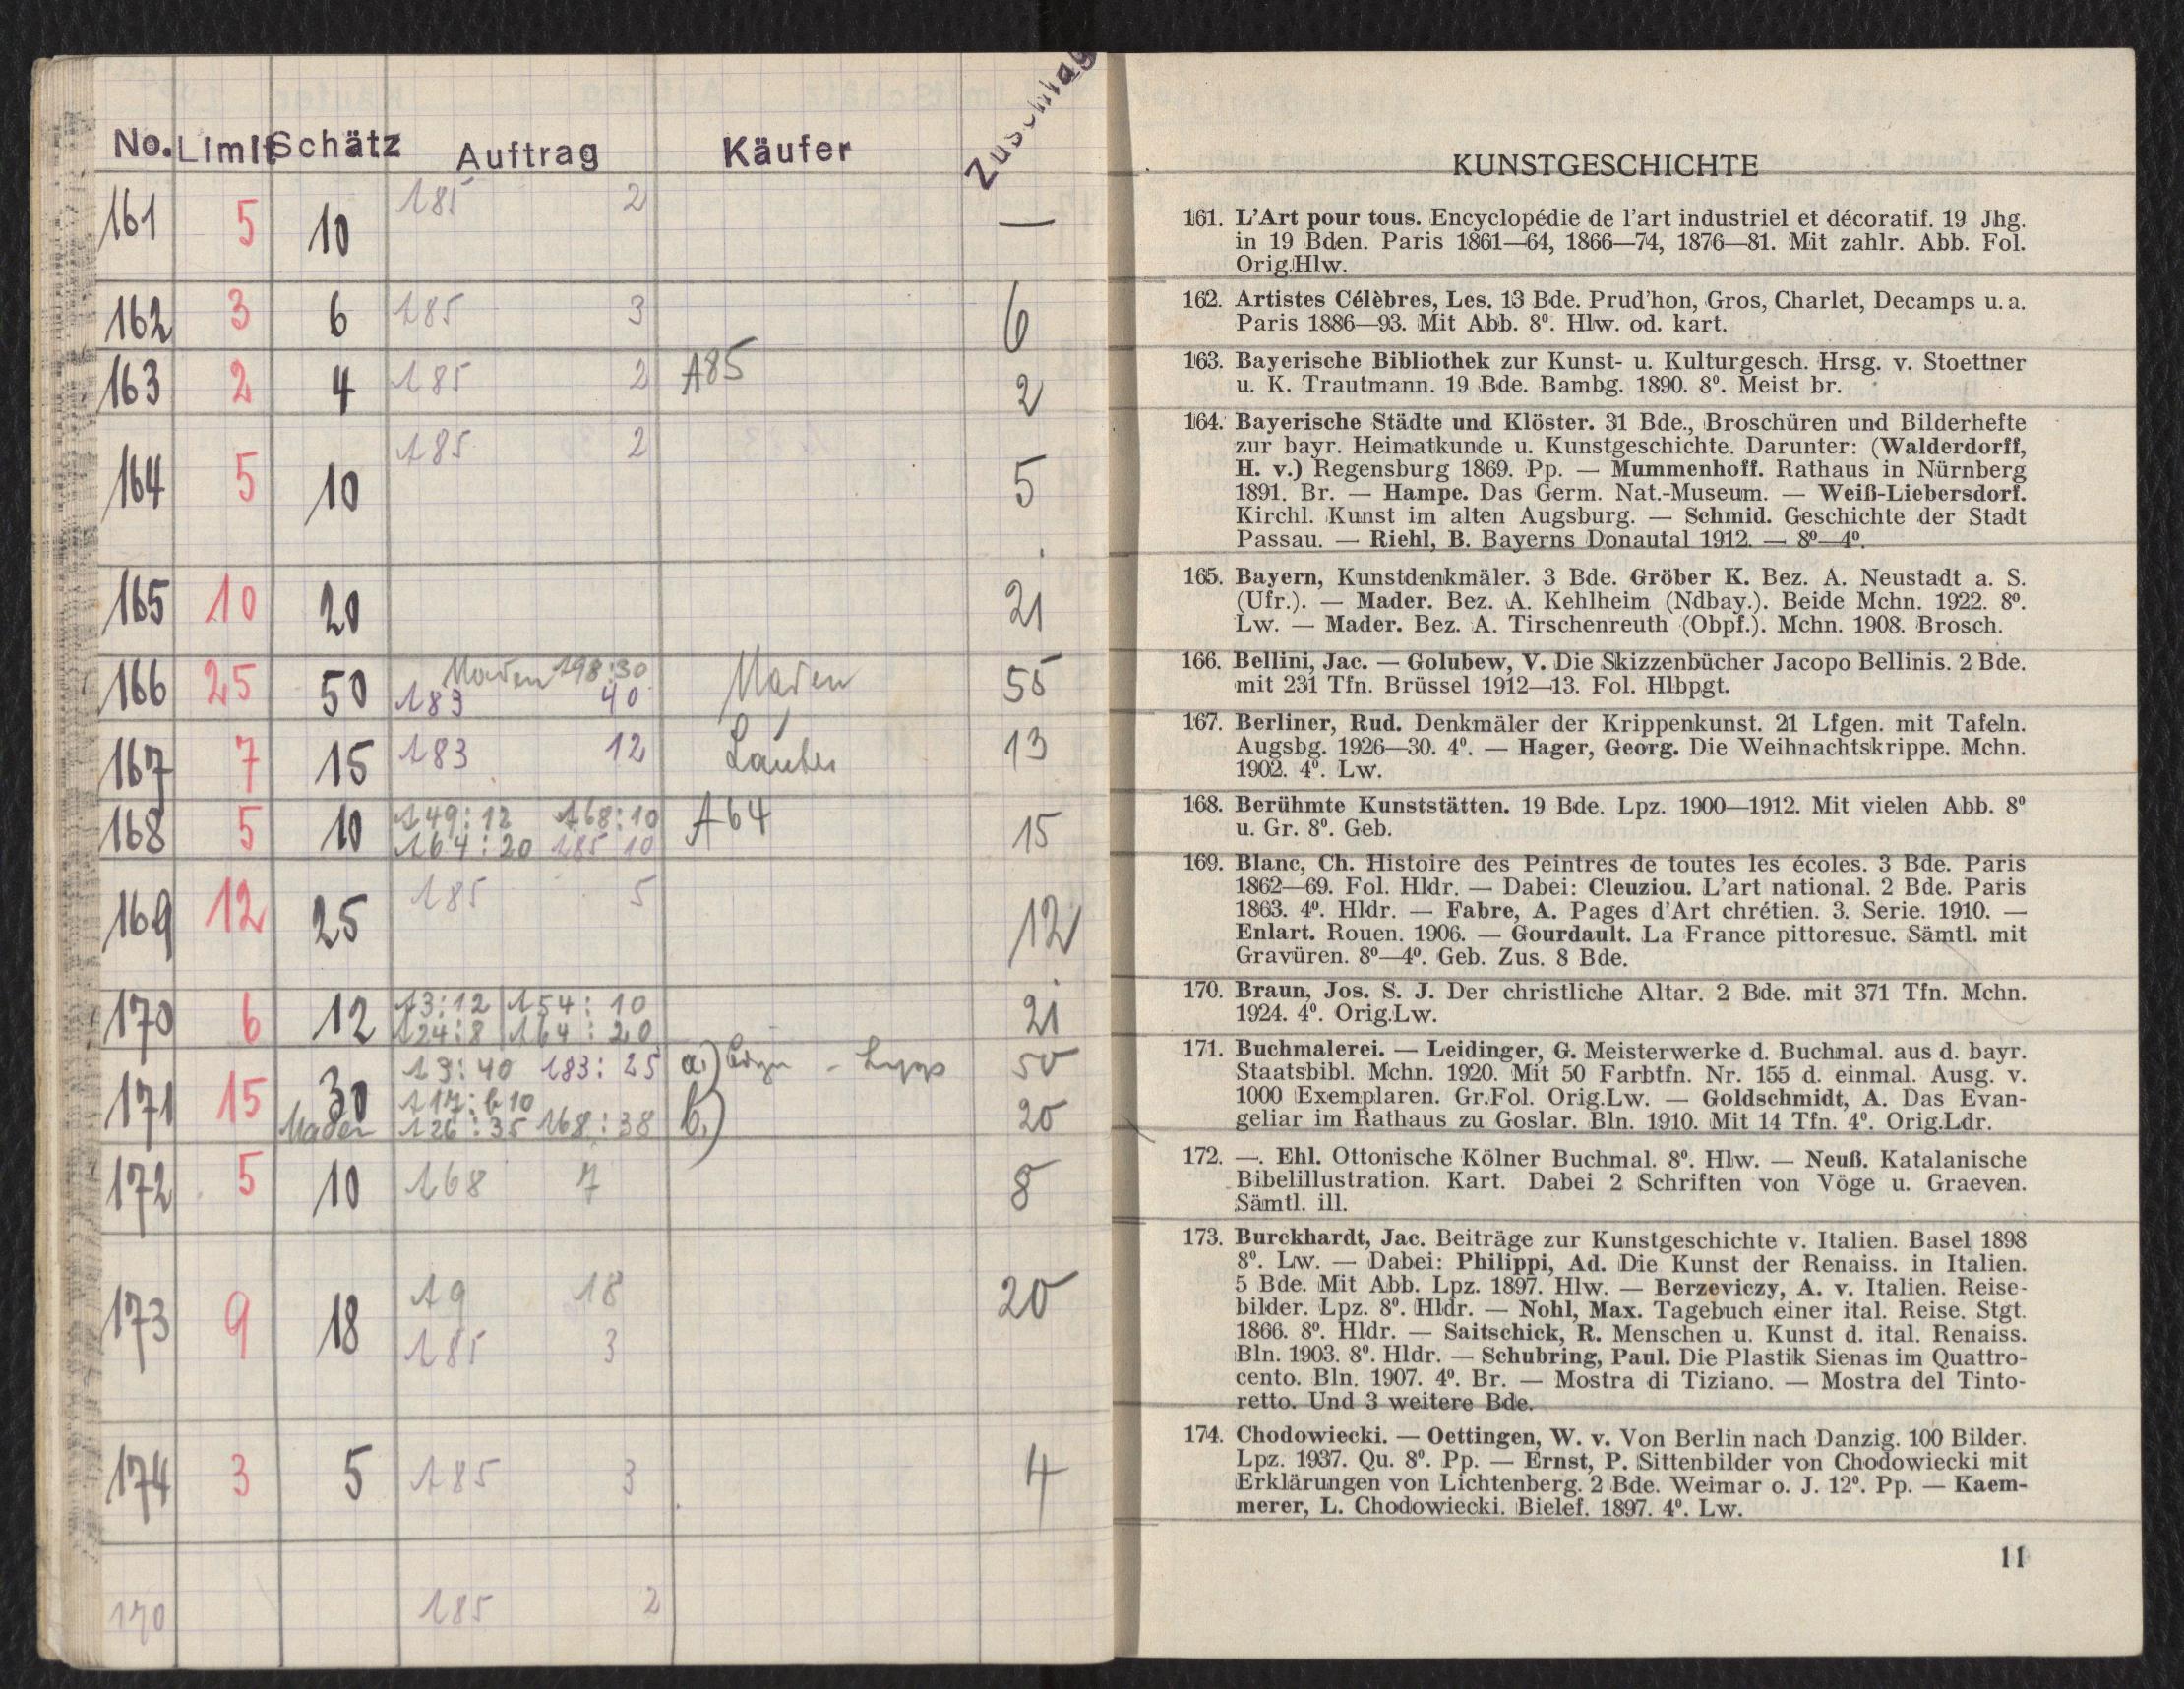 No. Limit Schätz Auftrag Käufer Zuschlag
161 5 10 185 2 —
162 3 6 185 3 6
163 2 4 185 2 A85 2
164 5 10 185 2 5
165 10 20 21
166 25 50 198:30
183 40 55
167 7 15 183 12 13
168 5 10 149:12 168:10 A64 15
164:20 185 10
169 12 25 185 5 12
170 6 12 13:12 154:10 21
124:8 164:20
171 15 30 19:40 183:25 a.) 50
117:b10
126:35 168:38 b.) 20
172 5 10 168 7 8
173 9 18 19 18 20
185 3
174 3 5 185 3 4
170 185 2
KUNSTGESCHICHTE
161. L'Art pour tous. Encyclopédie de l'art industriel et décoratif. 19 Jhg.
in 19 Bden. Paris 1861—64, 1866—74, 1876—81. Mit zahlr. Abb. Fol.
Orig.Hlw.
162. Artistes Célèbres, Les. 13 Bde. Prud'hon, Gros, Charlet, Decamps u. a.
Paris 1886—93. Mit Abb. 8⁰. Hlw. od. kart.
163. Bayerische Bibliothek zur Kunst- u. Kulturgesch. Hrsg. v. Stoettner
u. K. Trautmann. 19 Bde. Bambg. 1890. 8⁰. Meist br.
164. Bayerische Städte und Klöster. 31 Bde., Broschüren und Bilderhefte
zur bayr. Heimatkunde u. Kunstgeschichte. Darunter: (Walderdorff,
H. v.) Regensburg 1869. Pp. — Mummenhoff. Rathaus in Nürnberg
1891. Br. — Hampe. Das Germ. Nat.-Museum. — Weiß-Liebersdorf.
Kirchl. Kunst im alten Augsburg. — Schmid. Geschichte der Stadt
Passau. — Riehl, B. Bayerns Donautal 1912. — 8⁰—4⁰.
165. Bayern, Kunstdenkmäler. 3 Bde. Gröber K. Bez. A. Neustadt a. S.
(Ufr.). — Mader. Bez. A. Kehlheim (Ndbay.). Beide Mchn. 1922. 8⁰.
Lw. — Mader. Bez. A. Tirschenreuth (Obpf.). Mchn. 1908. Brosch.
166. Bellini, Jac. — Golubew, V. Die Skizzenbücher Jacopo Bellinis. 2 Bde.
mit 231 Tfn. Brüssel 1912—13. Fol. Hlbpgt.
167. Berliner, Rud. Denkmäler der Krippenkunst. 21 Lfgen. mit Tafeln.
Augsbg. 1926—30. 4⁰. — Hager, Georg. Die Weihnachtskrippe. Mchn.
1902. 4⁰. Lw.
168. Berühmte Kunststätten. 19 Bde. Lpz. 1900—1912. Mit vielen Abb. 8⁰
u. Gr. 8⁰. Geb.
169. Blanc, Ch. Histoire des Peintres de toutes les écoles. 3 Bde. Paris
1862—69. Fol. Hldr. — Dabei: Cleuziou. L'art national. 2 Bde. Paris
1863. 4⁰. Hldr. — Fabre, A. Pages d'Art chrétien. 3. Serie. 1910. —
Enlart. Rouen. 1906. — Gourdault. La France pittoresue. Sämtl. mit
Gravüren. 8⁰—4⁰. Geb. Zus. 8 Bde.
170. Braun, Jos. S. J. Der christliche Altar. 2 Bde. mit 371 Tfn. Mchn.
1924. 4⁰. Orig.Lw.
171. Buchmalerei. — Leidinger, G. Meisterwerke d. Buchmal. aus d. bayr.
Staatsbibl. Mchn. 1920. Mit 50 Farbtfn. Nr. 155 d. einmal. Ausg. v.
1000 Exemplaren. Gr.Fol. Orig.Lw. — Goldschmidt, A. Das Evan-
geliar im Rathaus zu Goslar. Bln. 1910. Mit 14 Tfn. 4⁰. Orig.Ldr.
172. —. Ehl. Ottonische Kölner Buchmal. 8⁰. Hlw. — Neuß. Katalanische
Bibelillustration. Kart. Dabei 2 Schriften von Vöge u. Graeven.
Sämtl. ill.
173. Burckhardt, Jac. Beiträge zur Kunstgeschichte v. Italien. Basel 1898
8⁰. Lw. — Dabei: Philippi, Ad. Die Kunst der Renaiss. in Italien.
5 Bde. Mit Abb. Lpz. 1897. Hlw. — Berzeviczy, A. v. Italien. Reise-
bilder. Lpz. 8⁰. Hldr. — Nohl, Max. Tagebuch einer ital. Reise. Stgt.
1866. 8⁰. Hldr. — Saitschick, R. Menschen u. Kunst d. ital. Renaiss.
Bln. 1903. 8⁰. Hldr. — Schubring, Paul. Die Plastik Sienas im Quattro-
cento. Bln. 1907. 4⁰. Br. — Mostra di Tiziano. — Mostra del Tinto-
retto. Und 3 weitere Bde.
174. Chodowiecki. — Oettingen, W. v. Von Berlin nach Danzig. 100 Bilder.
Lpz. 1937. Qu. 8⁰. Pp. — Ernst, P. Sittenbilder von Chodowiecki mit
Erklärungen von Lichtenberg. 2 Bde. Weimar o. J. 12⁰. Pp. — Kaem-
merer, L. Chodowiecki. Bielef. 1897. 4⁰. Lw.
11